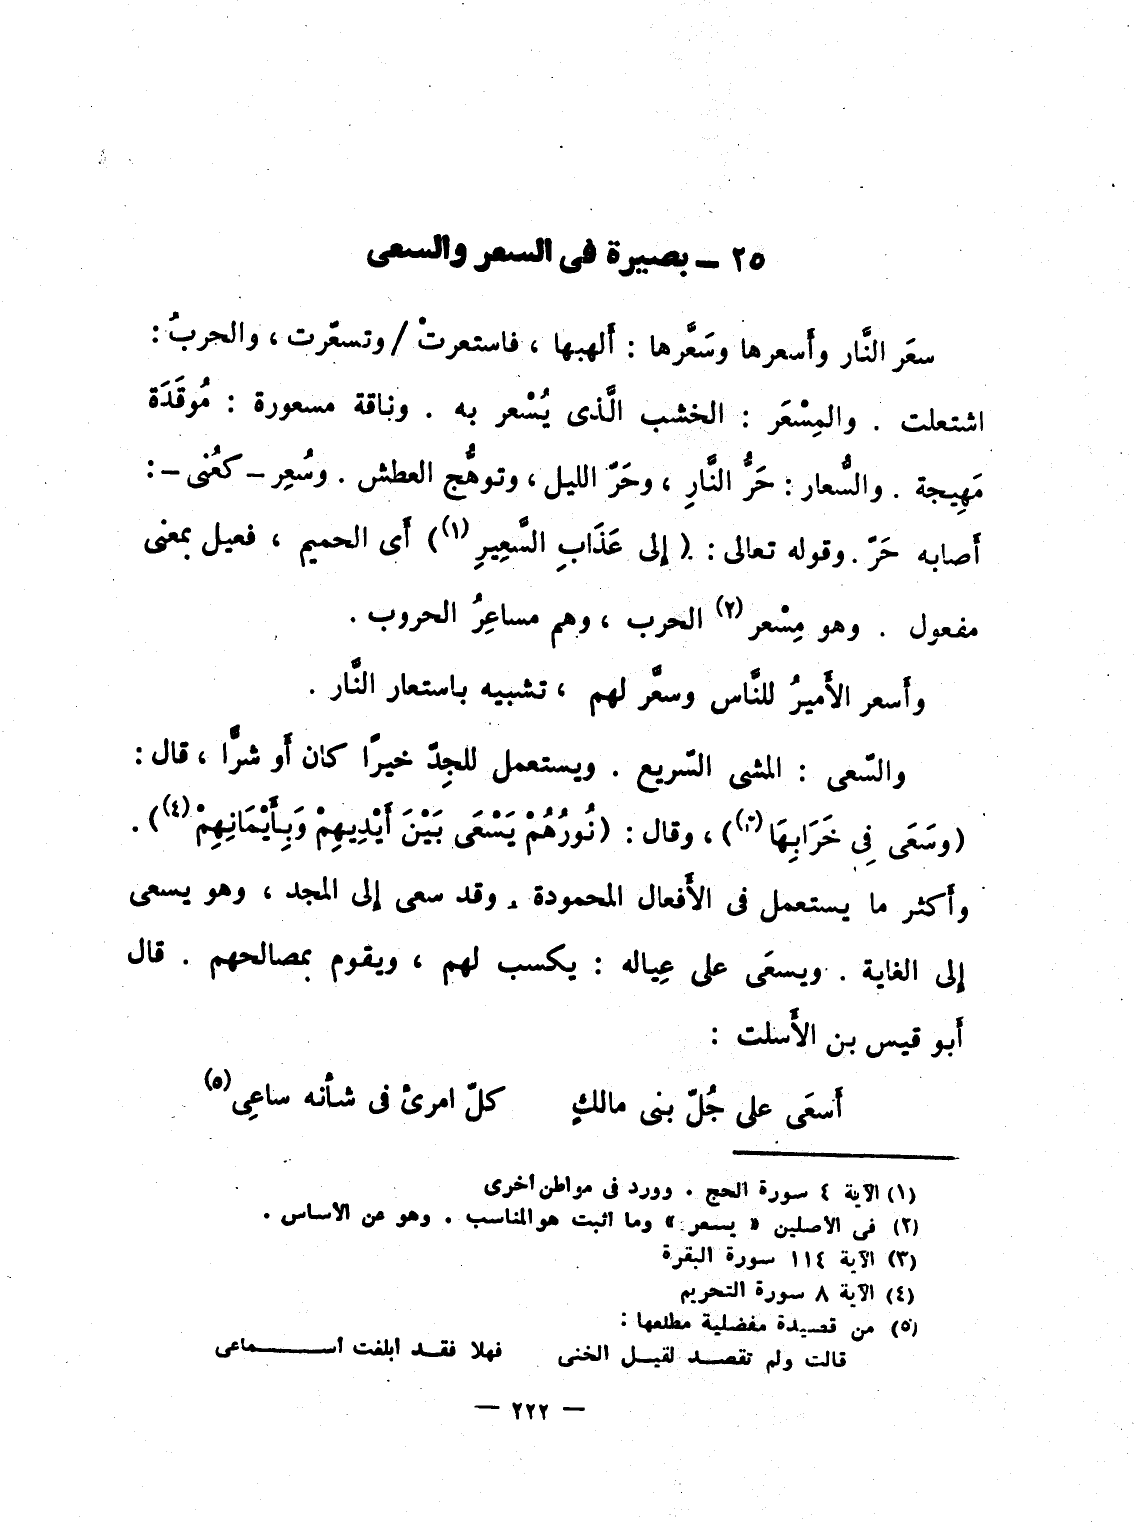 ٢٥ ــ بصيرة فى السعر والسعى
سعَر النَّار وأَسعرها وسَعَّرها : أَلهبها ، فاستعرتْ / وتسعّرت ، والحربُ :
اشتعلت . والمِسْعَر : الخشب الَّذى يُسْعر به . وناقة مسعورة : مُوقَدَة
مَهِيجة . والسُّعار : حَرُّ النَّارِ ، وحَرّ الليل ، وتوهُّج العطش . وسُعِر – كعُنى – :
أَصابه حَرّ . وقوله تعالى : ( إلى عَذَابِ السَّعِيرِ (١) ) أَى الحميم ، فعيل بمعنى
مفعول . وهو مِسْعر (٢) الحرب ، وهم مساعِرُ الحروب .
وأَسعر الأَميرُ للنَّاس وسعَّر لهم ، تشبيه باستعار النَّار .
والسّعى : المشى السّريع . ويستعمل للجِدّ خيرًا كان أَو شرًّا ، قال :
(وسَعَى فِى خَرَابِهَا (٣) ) ، وقال : (نُورُهُمْ يَسْعَى بَيْنَ أَيْدِيهِمْ وَبِأَيْمَانِهِمْ (٤) ) .
وأَكثر ما يستعمل فى الأَفعال المحمودة . وقد سعى إلى المجد ، وهو يسعى
إلى الغاية . ويسعَى على عِياله : يكسب لهم ، ويقوم بمصالحهم . قال
أَبو قيس بن الأَسلت :
أَسعَى على جُلّ بنى مالكٍ كلّ امرئ فى شأنه ساعِى (٥)
(١) الآية ٤ سورة الحج . وورد فى مواطن أخرى
(٢) فى الأصلين « يسعر » وما أثبت هو المناسب . وهو عن الأساس .
(٣) الآية ١١٤ سورة البقرة
(٤) الآية ٨ سورة التحريم
(٥) من قصيدة مفضلية مطلعها :
قالت ولم تقصد لقيل الخنى فهلا فقد أبلغت أسماعى
— ٢٢٢ —